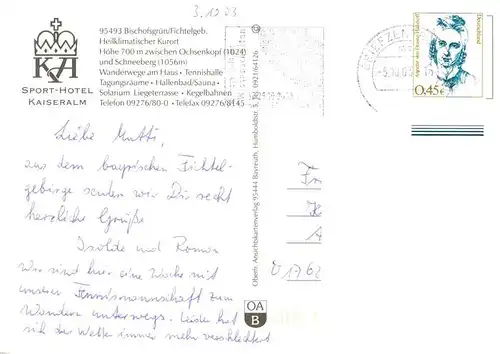 3.10.03
KA
SPORT-HOTEL
KAISERALM
95493 Bischofsgrün/Fichtelgeb.
Heilklimatischer Kurort
Höhe 700 m zwischen Ochsenkopf (1024)
und Schneeberg (1056m)
Wanderwege am Haus • Tennishalle
Tagungsräume • Hallenbad/Sauna •
Solarium Liegeterrasse • Kegelbahnen
Telefon 09276/80-0 • Telefax 09276/8145
Liebe Mutti,
aus dem bayrischen Fichtel-
gebirge senden wir Dir recht
herzliche Grüße
Isolde und Roman
Wir sind hier eine Woche mit
unserer Tennismannschaft zum
Wandern unterwegs. Leider hat
sich das Wetter immer mehr verschlechtert
Obern. Ansichtskartenverlag 95444 Bayreuth, Humboldtstr. 5, 0921/64126
OA
B
BRIEFZENTRUM
Deutschland
0,45€
Fr
K
D 1762